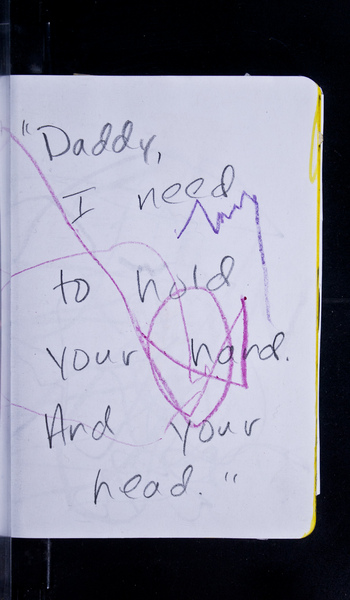 "Daddy,
I need
to hold
your hand.
And your
head."